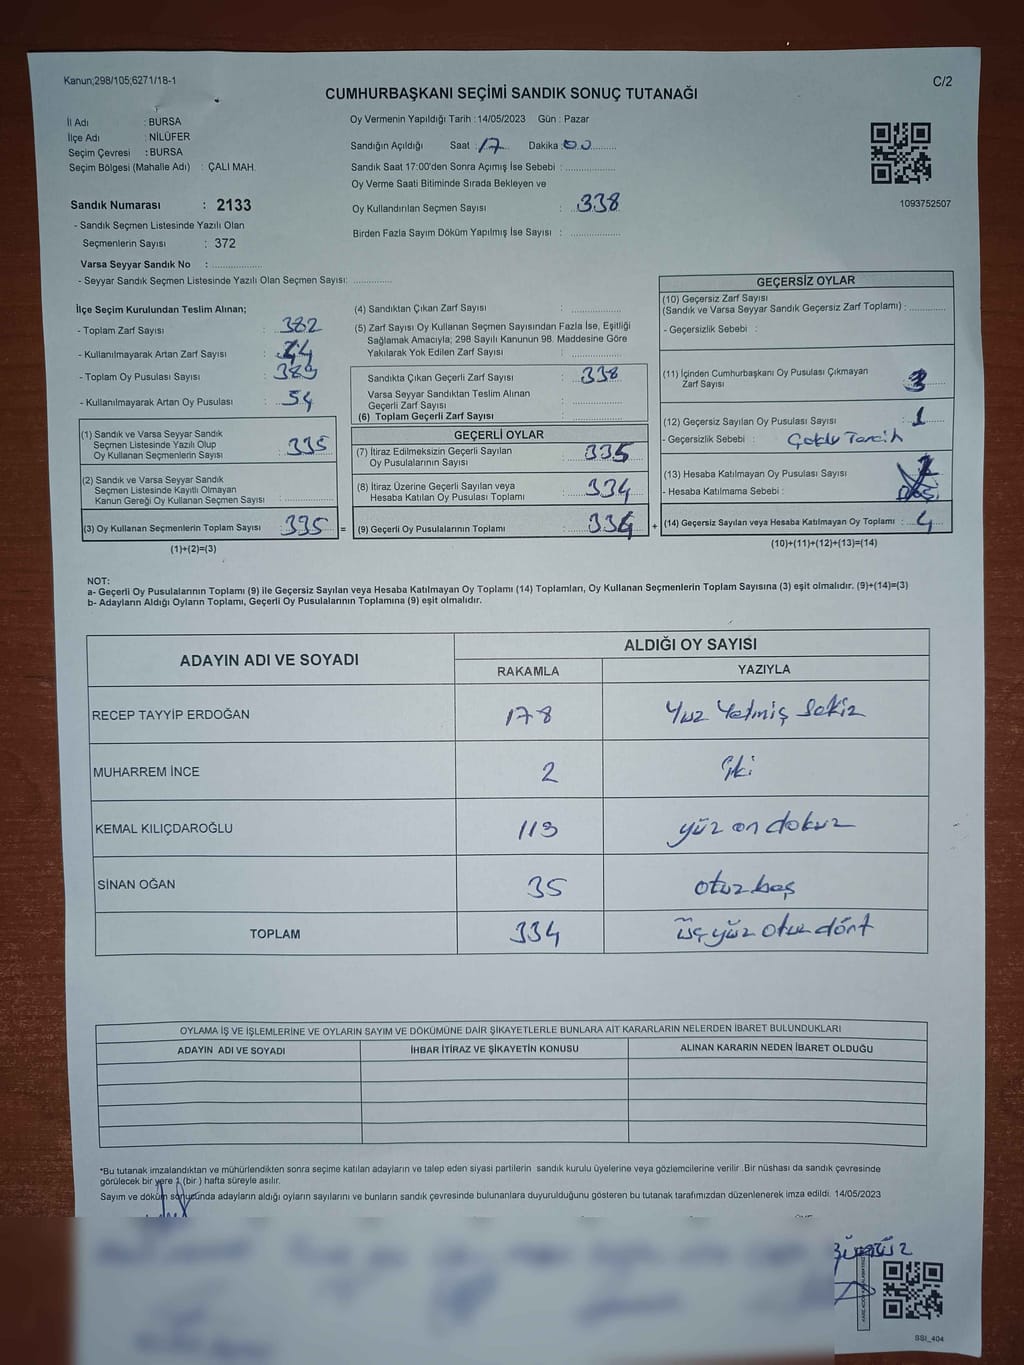 Kanun;298/105;6271/18-1
C/2
CUMHURBAŞKANI SEÇİMİ SANDIK SONUÇ TUTANAĞI
İl Adı : BURSA
İlçe Adı : NİLÜFER
Seçim Çevresi : BURSA
Seçim Bölgesi (Mahalle Adı) : ÇALI MAH.
Oy Vermenin Yapıldığı Tarih : 14/05/2023 Gün : Pazar
Sandığın Açıldığı Saat : 17 Dakika : 00
Sandık Saat 17:00'den Sonra Açımış İse Sebebi :
Oy Verme Saati Bitiminde Sırada Bekleyen ve
Oy Kullandırılan Seçmen Sayısı : 338
Birden Fazla Sayım Döküm Yapılmış İse Sayısı :
1093752507
Sandık Numarası : 2133
- Sandık Seçmen Listesinde Yazılı Olan
Seçmenlerin Sayısı : 372
Varsa Seyyar Sandık No :
- Seyyar Sandık Seçmen Listesinde Yazılı Olan Seçmen Sayısı:
İlçe Seçim Kurulundan Teslim Alınan;
- Toplam Zarf Sayısı : 382
- Kullanılmayarak Artan Zarf Sayısı : 44
- Toplam Oy Pusulası Sayısı : 389
- Kullanılmayarak Artan Oy Pusulası : 54
(1) Sandık ve Varsa Seyyar Sandık
Seçmen Listesinde Yazılı Olup
Oy Kullanan Seçmenlerin Sayısı : 335
(2) Sandık ve Varsa Seyyar Sandık
Seçmen Listesinde Kayıtlı Olmayan
Kanun Gereği Oy Kullanan Seçmen Sayısı :
(3) Oy Kullanan Seçmenlerin Toplam Sayısı : 335 =
(1)+(2)=(3)
(4) Sandıktan Çıkan Zarf Sayısı :
(5) Zarf Sayısı Oy Kullanan Seçmen Sayısından Fazla İse, Eşitliği
Sağlamak Amacıyla; 298 Sayılı Kanunun 98. Maddesine Göre
Yakılarak Yok Edilen Zarf Sayısı :
Sandıkta Çıkan Geçerli Zarf Sayısı : 338
Varsa Seyyar Sandıktan Teslim Alınan
Geçerli Zarf Sayısı :
(6) Toplam Geçerli Zarf Sayısı :
GEÇERLİ OYLAR
(7) İtiraz Edilmeksizin Geçerli Sayılan
Oy Pusulalarının Sayısı : 335
(8) İtiraz Üzerine Geçerli Sayılan veya
Hesaba Katılan Oy Pusulası Toplamı : 334
(9) Geçerli Oy Pusulalarının Toplamı : 334 +
GEÇERSİZ OYLAR
(10) Geçersiz Zarf Sayısı
(Sandık ve Varsa Seyyar Sandık Geçersiz Zarf Toplamı) :
- Geçersizlik Sebebi :
(11) İçinden Cumhurbaşkanı Oy Pusulası Çıkmayan
Zarf Sayısı : 3
(12) Geçersiz Sayılan Oy Pusulası Sayısı : 1
- Geçersizlik Sebebi : Çoklu Tercih
(13) Hesaba Katılmayan Oy Pusulası Sayısı
- Hesaba Katılmama Sebebi :
(14) Geçersiz Sayılan veya Hesaba Katılmayan Oy Toplamı : 4
(10)+(11)+(12)+(13)=(14)
NOT:
a- Geçerli Oy Pusulalarının Toplamı (9) ile Geçersiz Sayılan veya Hesaba Katılmayan Oy Toplamı (14) Toplamları, Oy Kullanan Seçmenlerin Toplam Sayısına (3) eşit olmalıdır. (9)+(14)=(3)
b- Adayların Aldığı Oyların Toplamı, Geçerli Oy Pusulalarının Toplamına (9) eşit olmalıdır.
ADAYIN ADI VE SOYADI
ALDIĞI OY SAYISI
RAKAMLA YAZIYLA
RECEP TAYYİP ERDOĞAN 178 Yüz Yetmiş Sekiz
MUHARREM İNCE 2 iki
KEMAL KILIÇDAROĞLU 119 yüz on dokuz
SİNAN OĞAN 35 otuz beş
TOPLAM 334 üç yüz otuz dört
OYLAMA İŞ VE İŞLEMLERİNE VE OYLARIN SAYIM VE DÖKÜMÜNE DAİR ŞİKAYETLERLE BUNLARA AİT KARARLARIN NELERDEN İBARET BULUNDUKLARI
ADAYIN ADI VE SOYADI İHBAR İTİRAZ VE ŞİKAYETİN KONUSU ALINAN KARARIN NEDEN İBARET OLDUĞU
*Bu tutanak imzalandıktan ve mühürlendikten sonra seçime katılan adayların ve talep eden siyasi partilerin sandık kurulu üyelerine veya gözlemcilerine verilir .Bir nüshası da sandık çevresinde
görülecek bir yere 1 (bir ) hafta süreyle asılır.
Sayım ve döküm sonucunda adayların aldığı oyların sayılarını ve bunların sandık çevresinde bulunanlara duyurulduğunu gösteren bu tutanak tarafımızdan düzenlenerek imza edildi. 14/05/2023
SSI_404